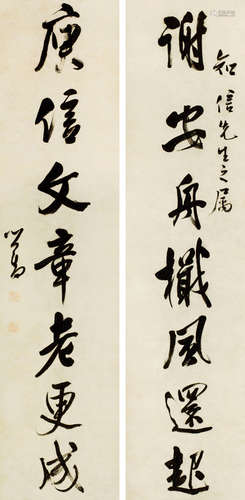 知信先生之属
谢安舟檝風還起
庾信文章老更成
心畬